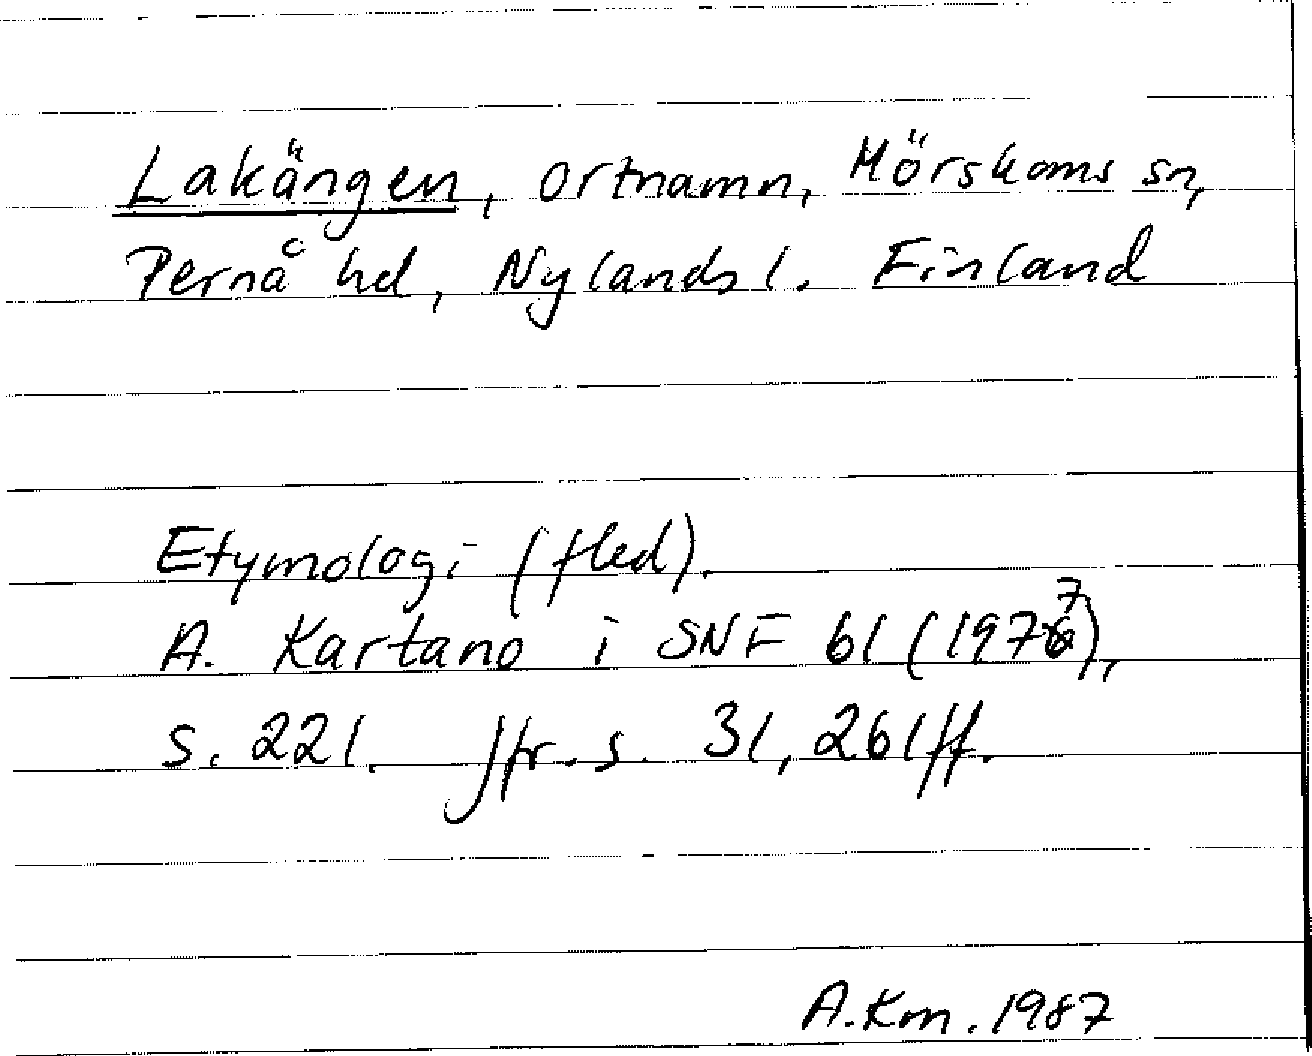 Lakängen, ortnamn, Mörskoms sn,
Pernå hd, Nylands l. Finland
Etymologi (fled).
A. Kartano i SNF 61 (1977),
s. 221. Jfr. s. 31, 261ff.
A.Km. 1987